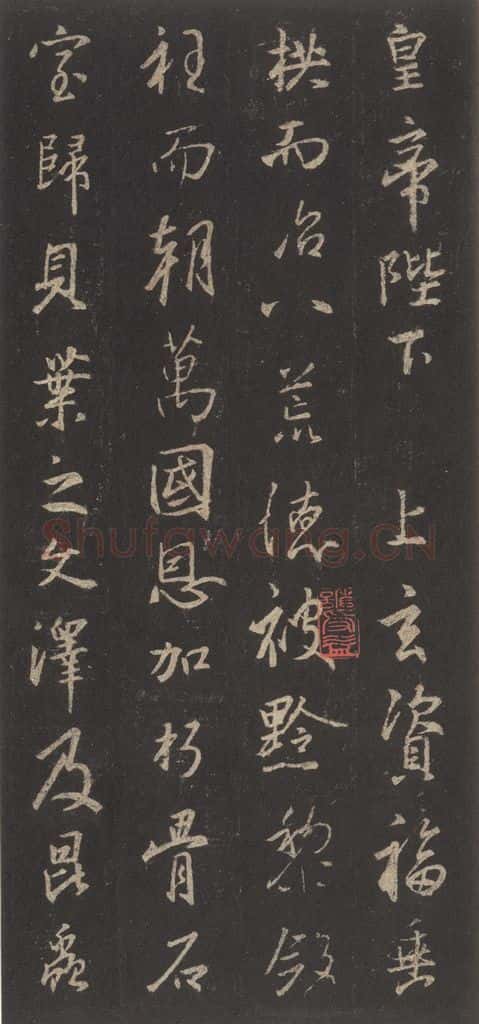 皇帝陛下 上玄資福垂
拱而治八荒德被黔黎斂
衽而朝萬國恩加朽骨石
室歸貝葉之文澤及昆蟲
Shufawang.CN